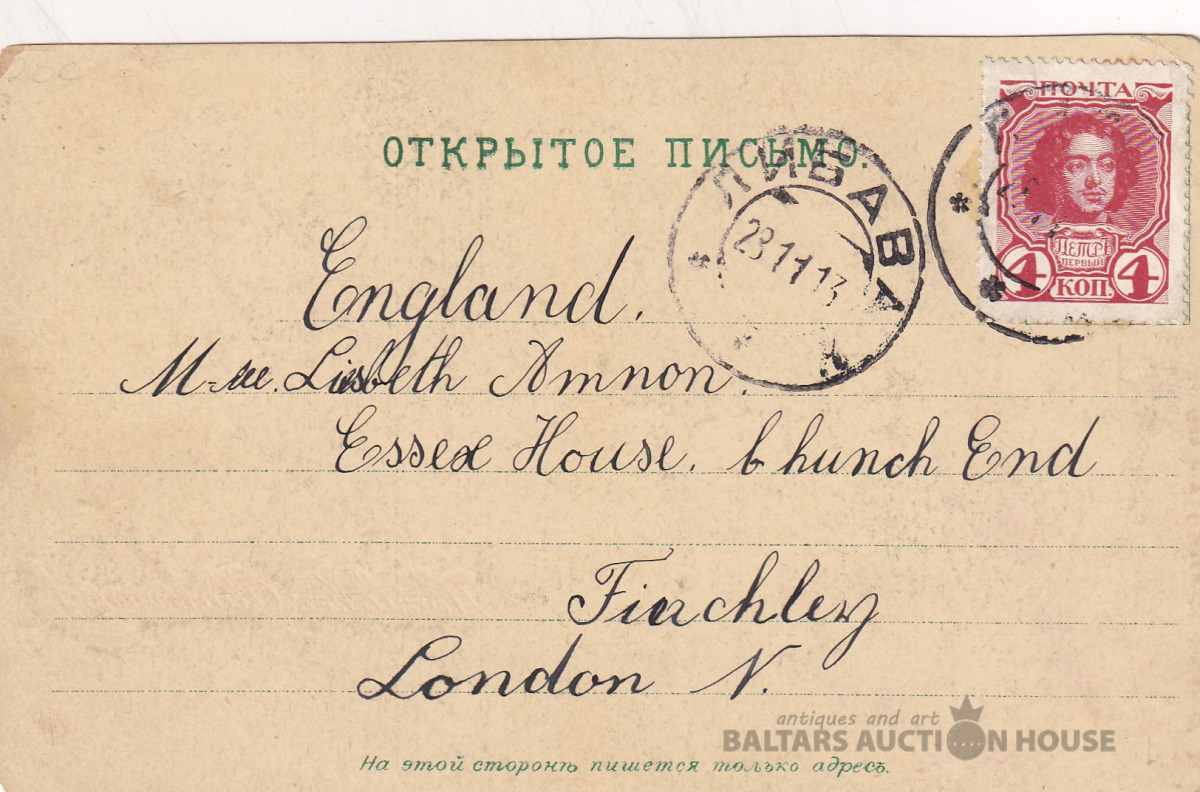 ОТКРЫТОЕ ПИСЬМО.
ПОЧТА
ПЕТРЪ
ПЕРВЫЙ
4 КОП. 4
ЛИБАВА
28 11 13
England.
M-me. Lisbeth Amnon.
Essex House. Chunch End
Finchley
London N.
antiques and art
BALTARS AUCTION HOUSE
На этой сторонѣ пишется только адресъ.